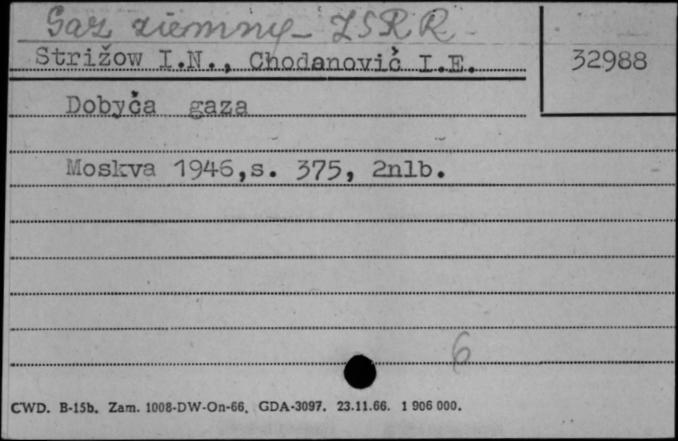 Gaz ziemny - ZSRR -
Strižow I.N., Chodanovič I.E.
32988
Dobyča gaza
Moskva 1946,s. 375, 2nlb.
6
CWD. B-15b. Zam. 1008-DW-On-66. GDA-3097. 23.11.66. 1 906 000.